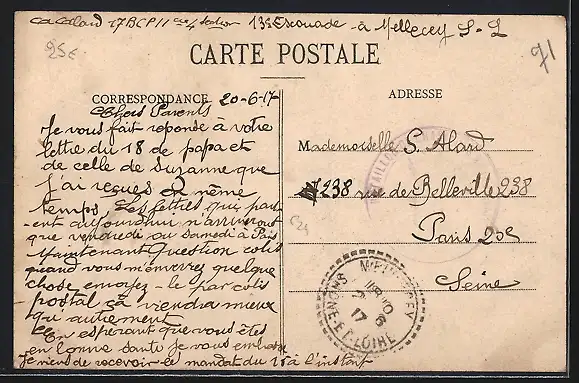 Alard 17 BCP 11 cie 4 section 13e Escouade - à Mellecey S-L
25c
71
CARTE POSTALE
CORRESPONDANCE 20-6-17
ADRESSE
Chers Parents
Je vous fait reponse à votre
lettre du 18 de papa et
de celle de Suzanne que
j'ai reçues en même
temps. Les lettres qui part
ent aujourdhui n'arriveront
que vendredi au samedi à Paris
Maintenant Question colis
quand vous m'enverrez quelque
chose envoyez-le par colis
postal ça viendra mieux
qu autrement
En esperant que vous êtes
en bonne santé je vous embrasse
je viens de recevoir le mandat du 18 à l'instant
Mademoiselle S. Alard
238 rue de Belleville 238
Paris 20e
Seine
SAONE-ET-LOIRE